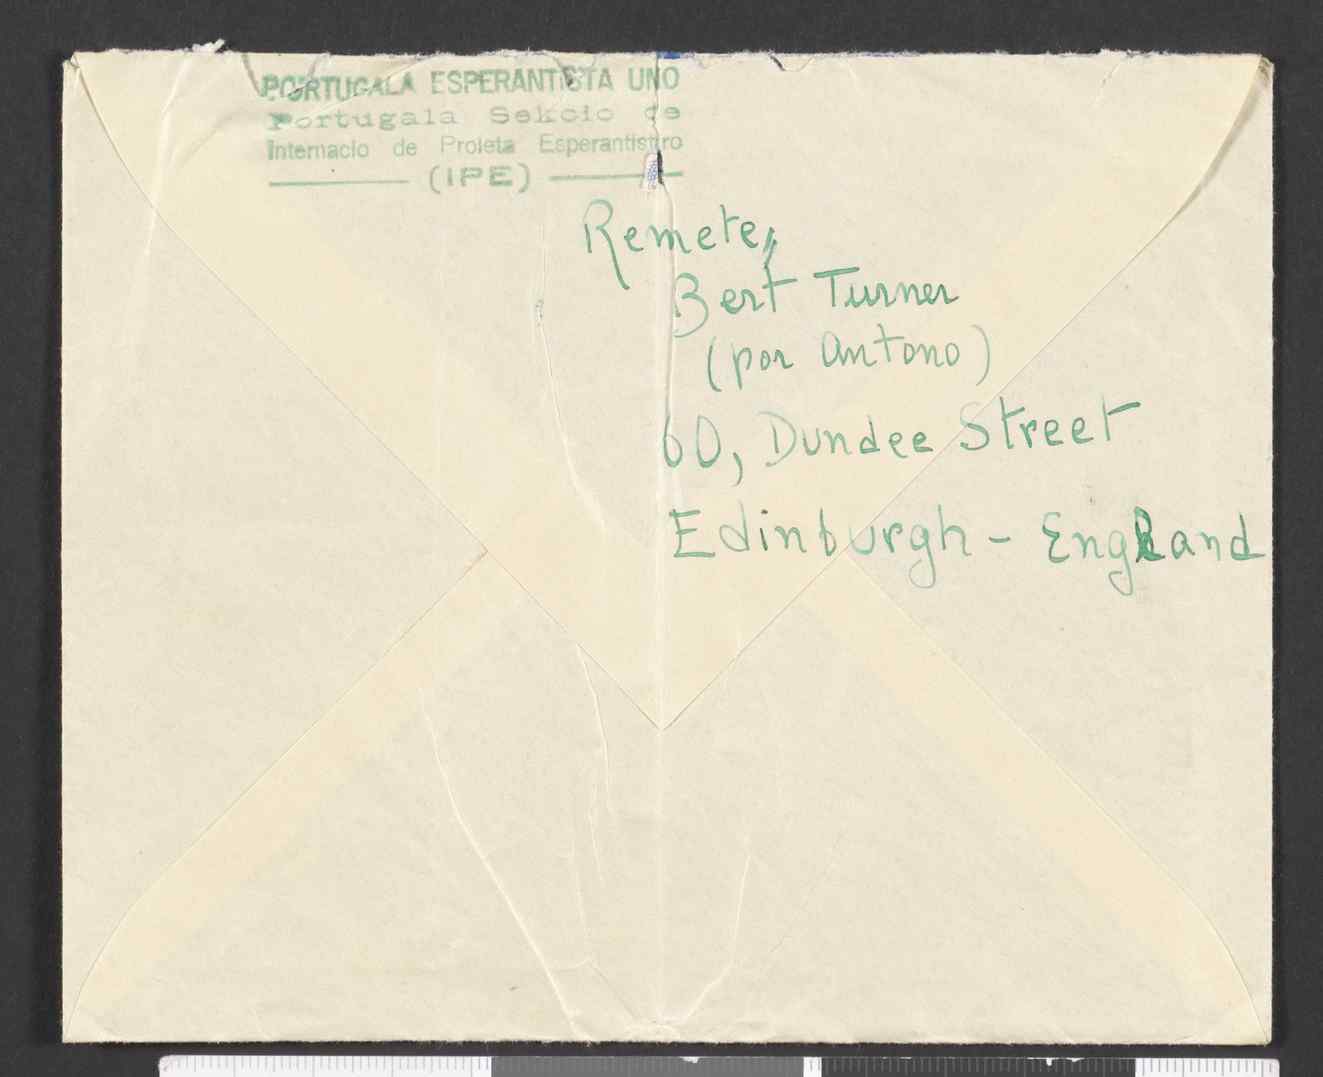 PORTUGALA ESPERANTISTA UNO
Portugala Sekcio de
Internacio de Proleta Esperantistiro
(IPE)
Remete,,
Bert Turner
(por Antono)
60, Dundee Street
Edinburgh - England